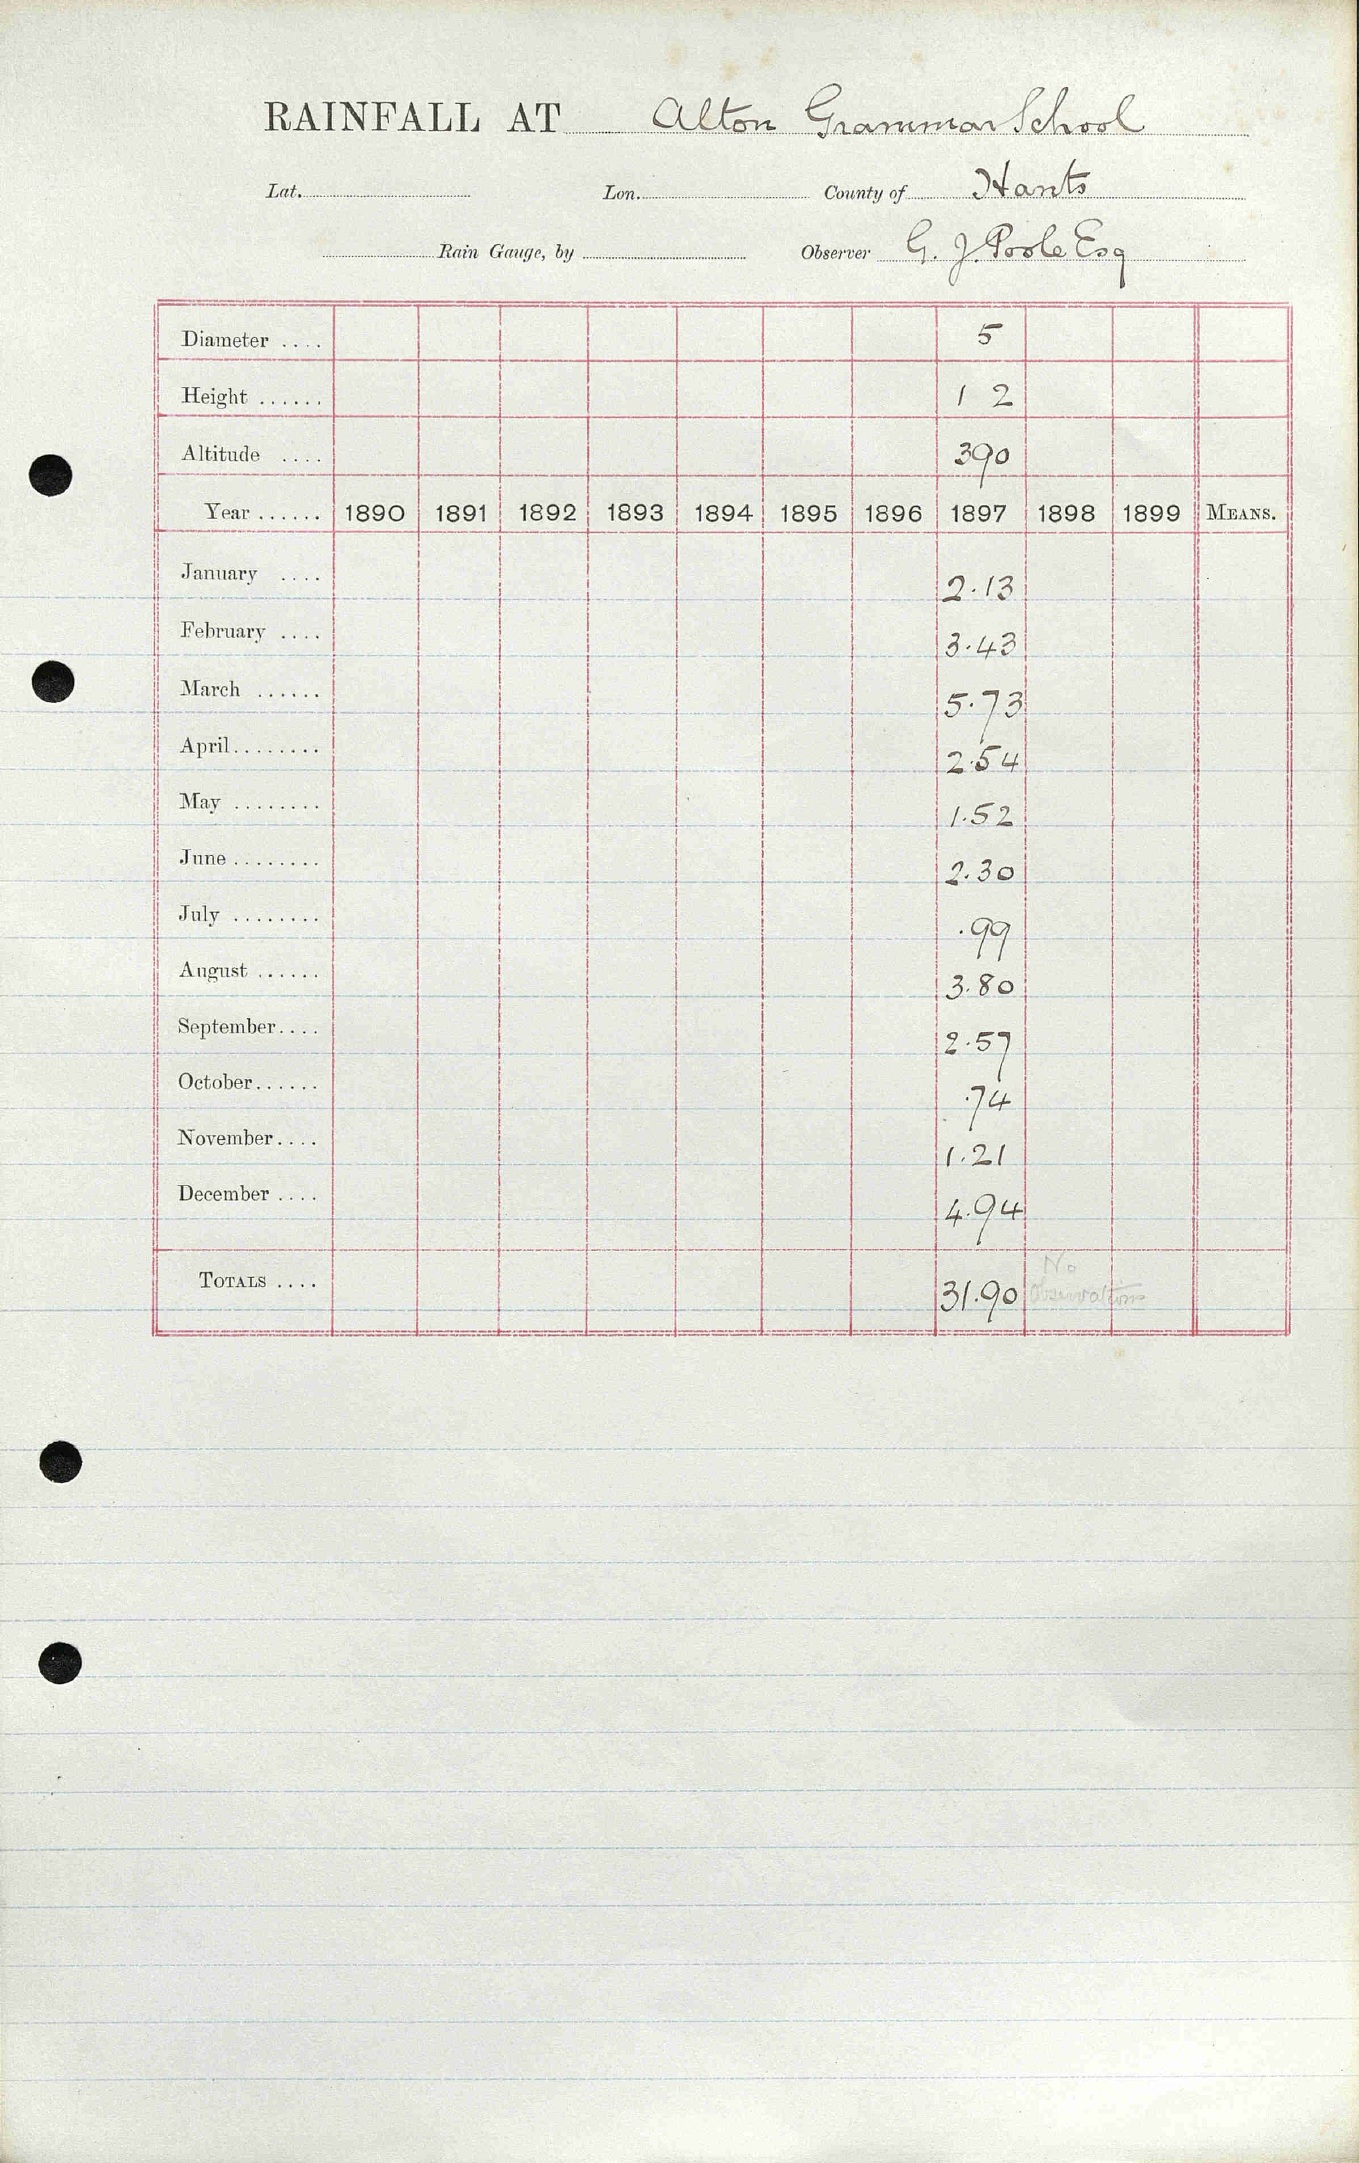 RAINFALL AT Alton Grammar School
Lat. Lon. County of Hants
Rain Gauge, by Observer G. J. Poole Esq
Diameter .... 5
Height ...... 1 2
Altitude .... 390
Year ...... 1890 1891 1892 1893 1894 1895 1896 1897 1898 1899 MEANS.
January .... 2.13
February .... 3.43
March ...... 5.73
April........ 2.54
May ........ 1.52
June ........ 2.30
July ........ .99
August ...... 3.80
September.... 2.57
October...... .74
November.... 1.21
December .... 4.94
TOTALS .... 31.90 No
Observations